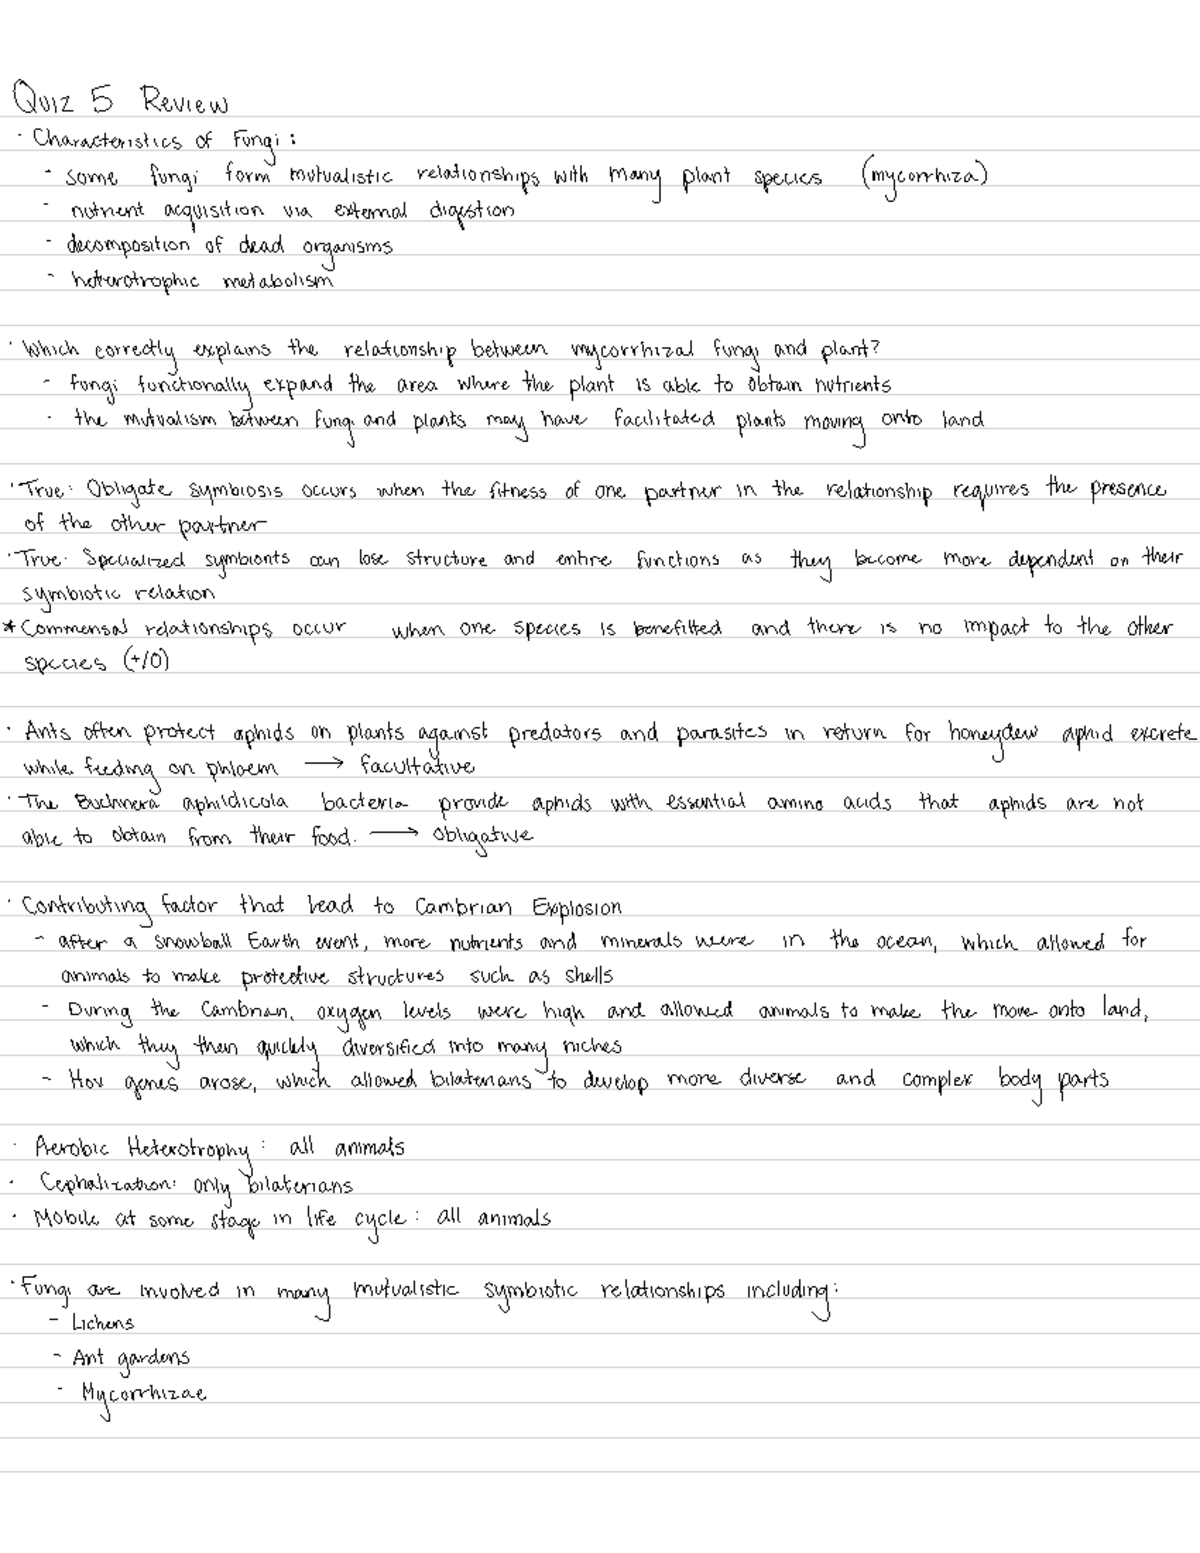 Quiz 5 Review
· Characteristics of Fungi:
- some fungi form mutualistic relationships with many plant species (mycorrhiza)
- nutrient acquisition via external digestion
- decomposition of dead organisms
- heterotrophic metabolism
· Which correctly explains the relationship between mycorrhizal fungi and plant?
- fungi functionally expand the area where the plant is able to obtain nutrients
- the mutualism between fungi and plants may have facilitated plants moving onto land
· True: Obligate symbiosis occurs when the fitness of one partner in the relationship requires the presence
of the other partner
· True: Specialized symbionts can lose structure and entire functions as they become more dependent on their
symbiotic relation
* Commensal relationships occur when one species is benefitted and there is no impact to the other
species (+/0)
· Ants often protect aphids on plants against predators and parasites in return for honeydew aphid excrete
while feeding on phloem → facultative
· The Buchnera aphildicola bacteria provide aphids with essential amino acids that aphids are not
able to obtain from their food. → obligative
· Contributing factor that lead to Cambrian Explosion
- after a snowball Earth event, more nutrients and minerals were in the ocean, which allowed for
animals to make protective structures such as shells
- During the Cambrian, oxygen levels were high and allowed animals to make the move onto land,
which they then quickly diversified into many niches
- Hox genes arose, which allowed bilaterians to develop more diverse and complex body parts
· Aerobic Heterotrophy: all animals
· Cephalization: only bilaterians
· Mobile at some stage in life cycle: all animals
· Fungi are involved in many mutualistic symbiotic relationships including:
- Lichens
- Ant gardens
- Mycorrhizae